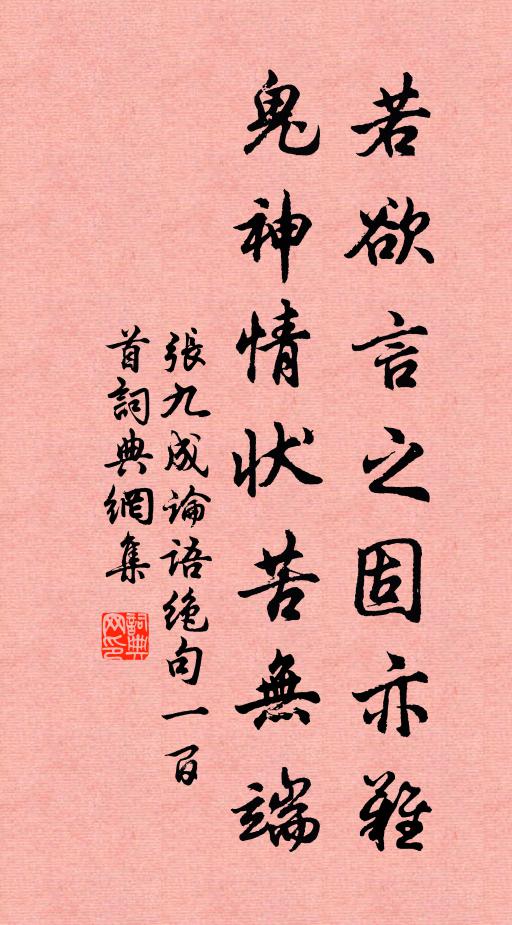 若欲言之固亦難
鬼神情状苦無端
張九成论语绝句一百
首詞典網集
詞典
网印